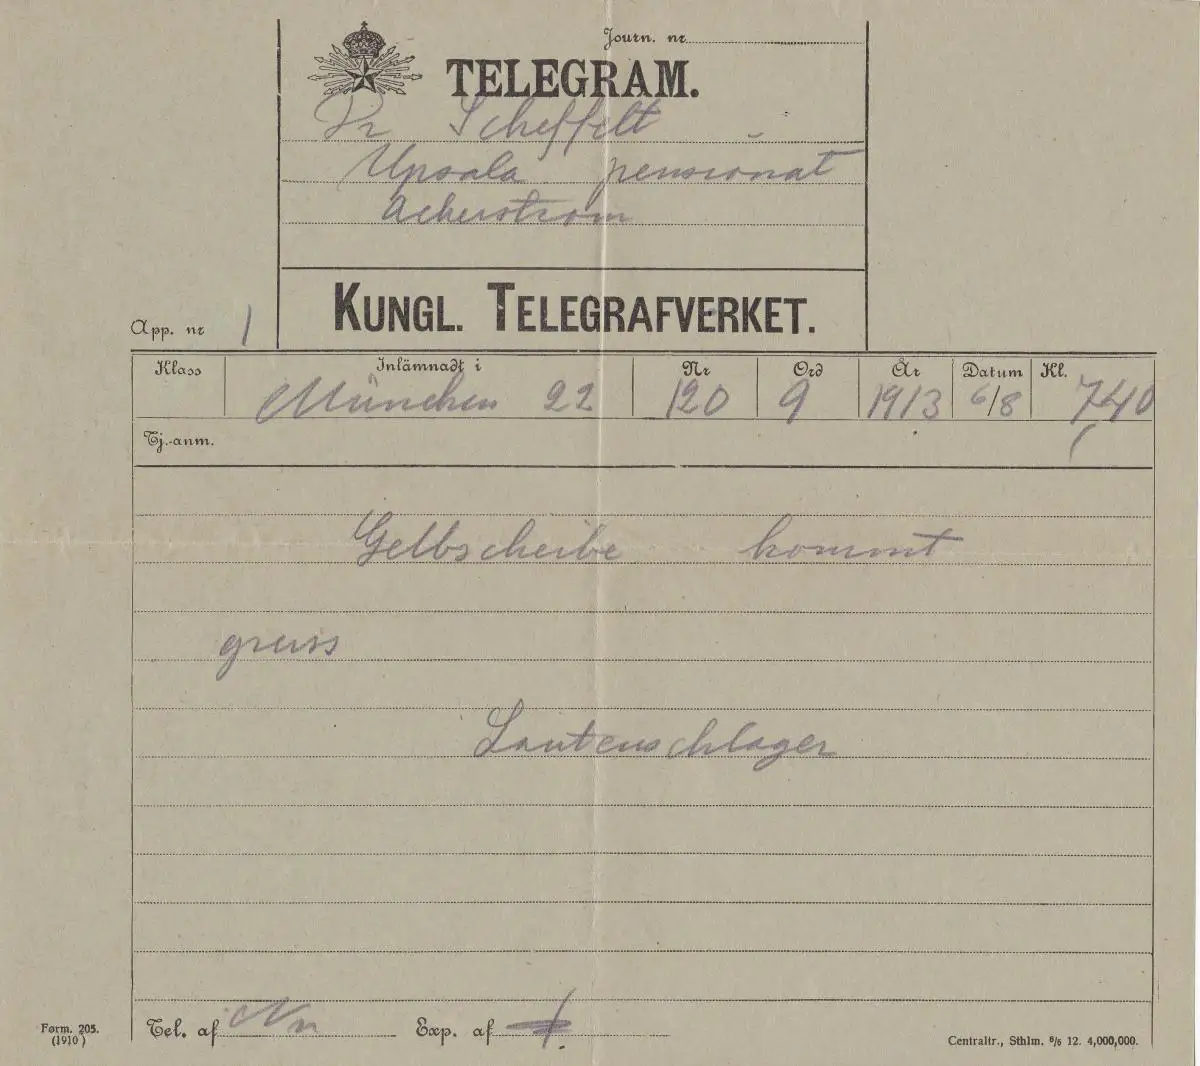 Journ. nr
TELEGRAM.
Dr Scheffelt
Upsala pensionat
Ackerstrom
KUNGL. TELEGRAFVERKET.
App. nr 1
Klass Inlämnadt i Nr Ord År Datum Kl.
München 22 120 9 1913 6/8 740
Tj.-anm.
Gelbscheibe kommt
gruss
Lautenschlager
Tel. af Nn Exp. af
Form. 205.
(1910)
Centraltr., Sthlm. 6/6 12. 4,000,000.